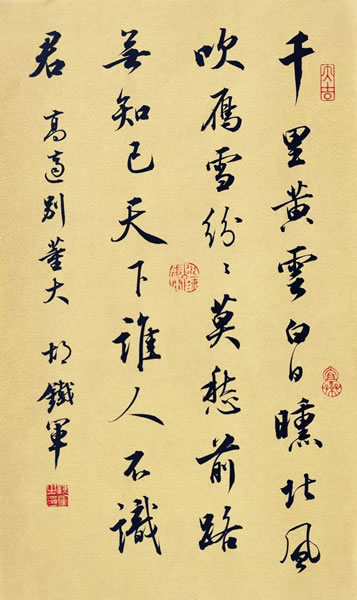 千里黃雲白日曛北風
吹鴈雪紛〻莫愁前路
無知己天下誰人不識
君
高適別董大 胡鐵軍
大吉